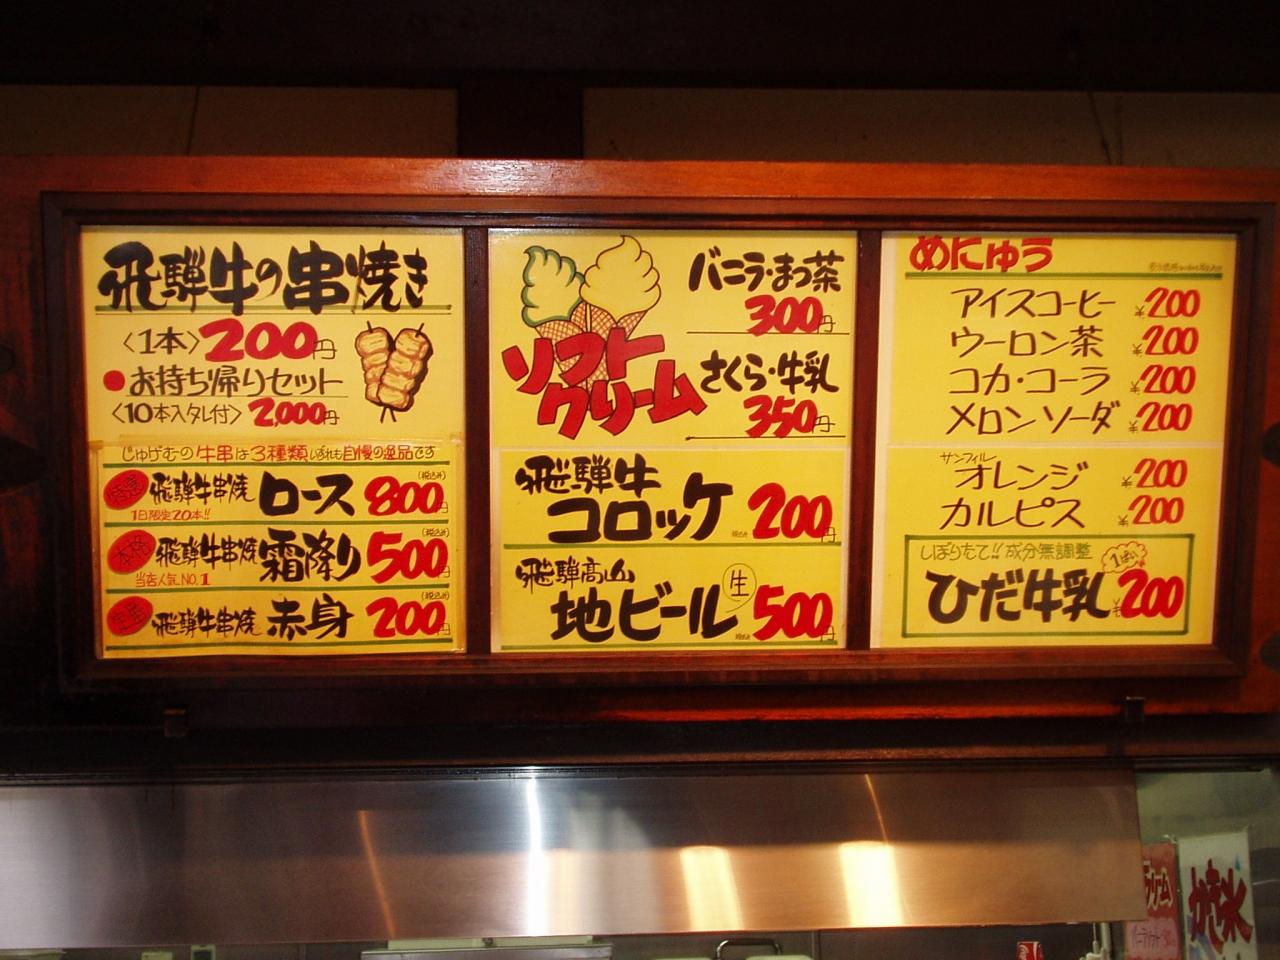 飛騨牛の串焼き
〈1本〉200円
●お持ち帰りセット
〈10本入タレ付〉2,000円
じゅげむの牛串は3種類いずれも自慢の逸品です
飛騨牛串焼 ロース 800円 (税込み)
1日限定20本!!
本格 飛騨牛串焼 霜降り 500円 (税込み)
当店人気NO.1
飛騨牛串焼 赤身 200円 (税込み)
ソフトクリーム
バニラ・まっ茶
300円
さくら・牛乳
350円
飛騨牛
コロッケ 200円
飛騨高山
地ビール 生 500円
めにゅう
アイスコーヒー ¥200
ウーロン茶 ¥200
コカ・コーラ ¥200
メロンソーダ ¥200
サンフィル
オレンジ ¥200
カルピス ¥200
しぼりたて!!成分無調整
ひだ牛乳 1ぱい ¥200
クリーム
かき氷